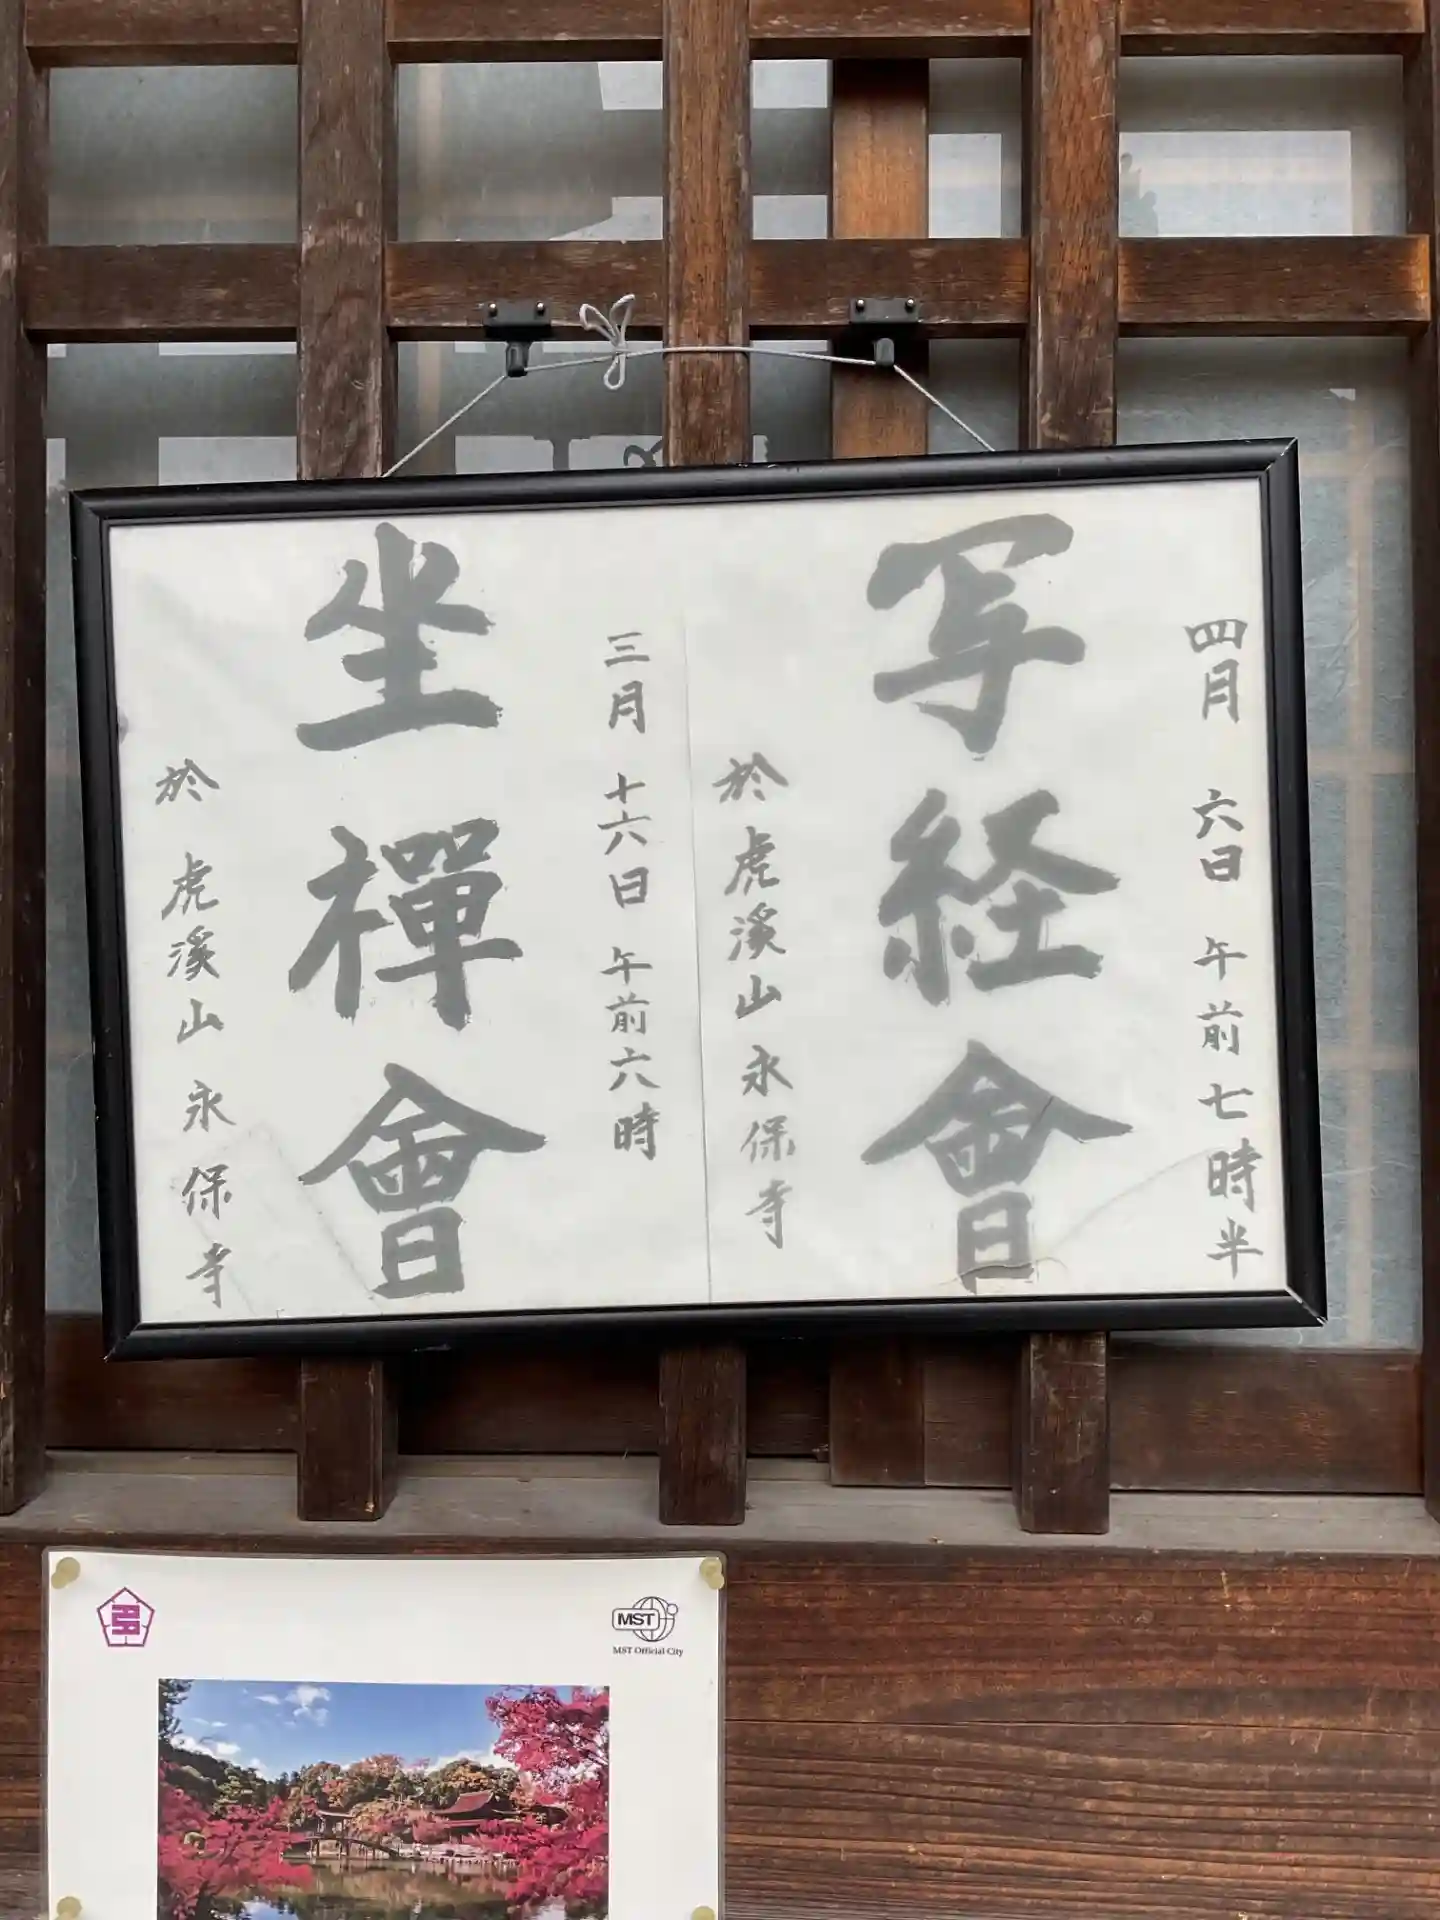 四月 六日 午前七時半
写経會
於 虎溪山 永保寺
三月 十六日 午前六時
坐禪會
於 虎溪山 永保寺
MST
MST Official City